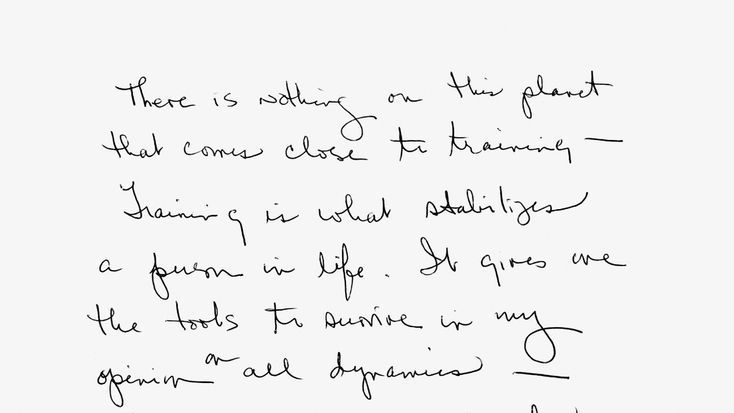 There is nothing on this planet
that comes close to training —
Training is what stabilizes
a person in life. It gives me
the tools to survive in my
opinion on all dynamics —